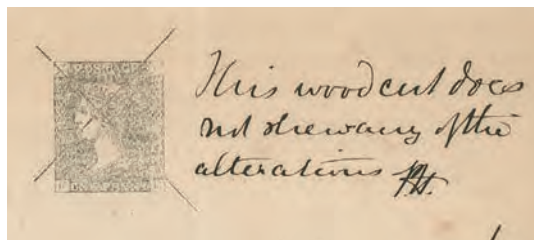 This woodcut does
not shew any of the
alterations